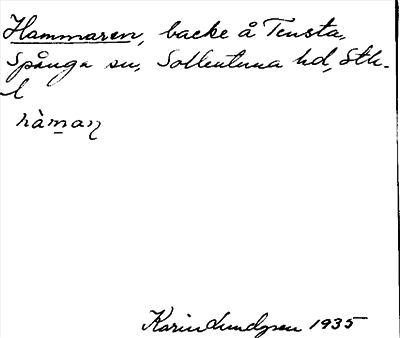 Hammaren, backe å Tensta,
Spånga sn, Sollentuna hd, Sth-
l
hàmaꞃ
Karin Lundgren 1935